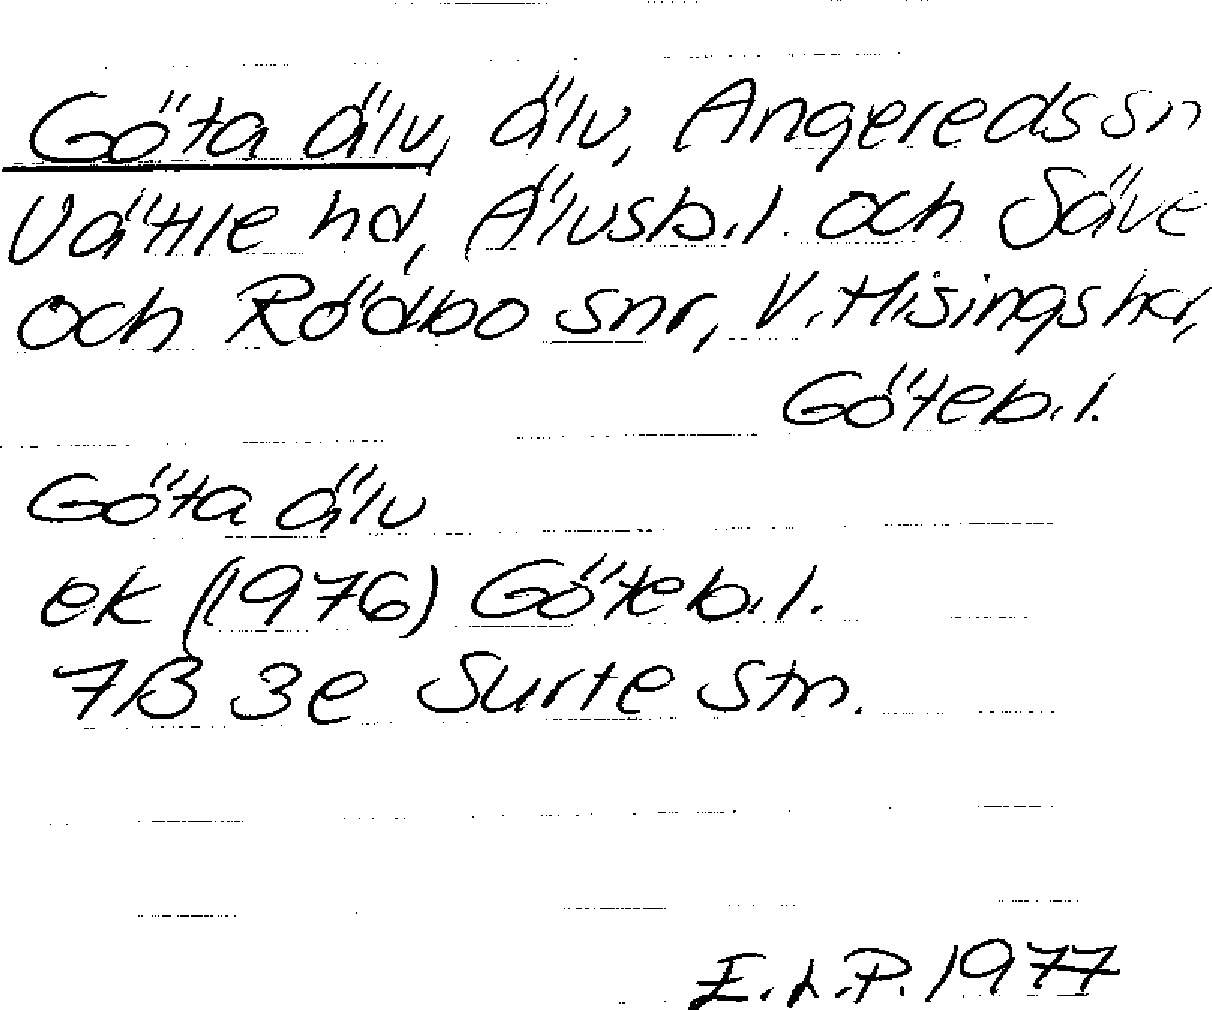 Göta älv, älv, Angereds sn
Vättle hd, Älvsb.l. och Säve
och Rödbo snr, V. Hisings hd,
Göteb.l.
Göta älv
ek (1976) Göteb.l.
7B 3e Surte stn.
E.L.P. 1977